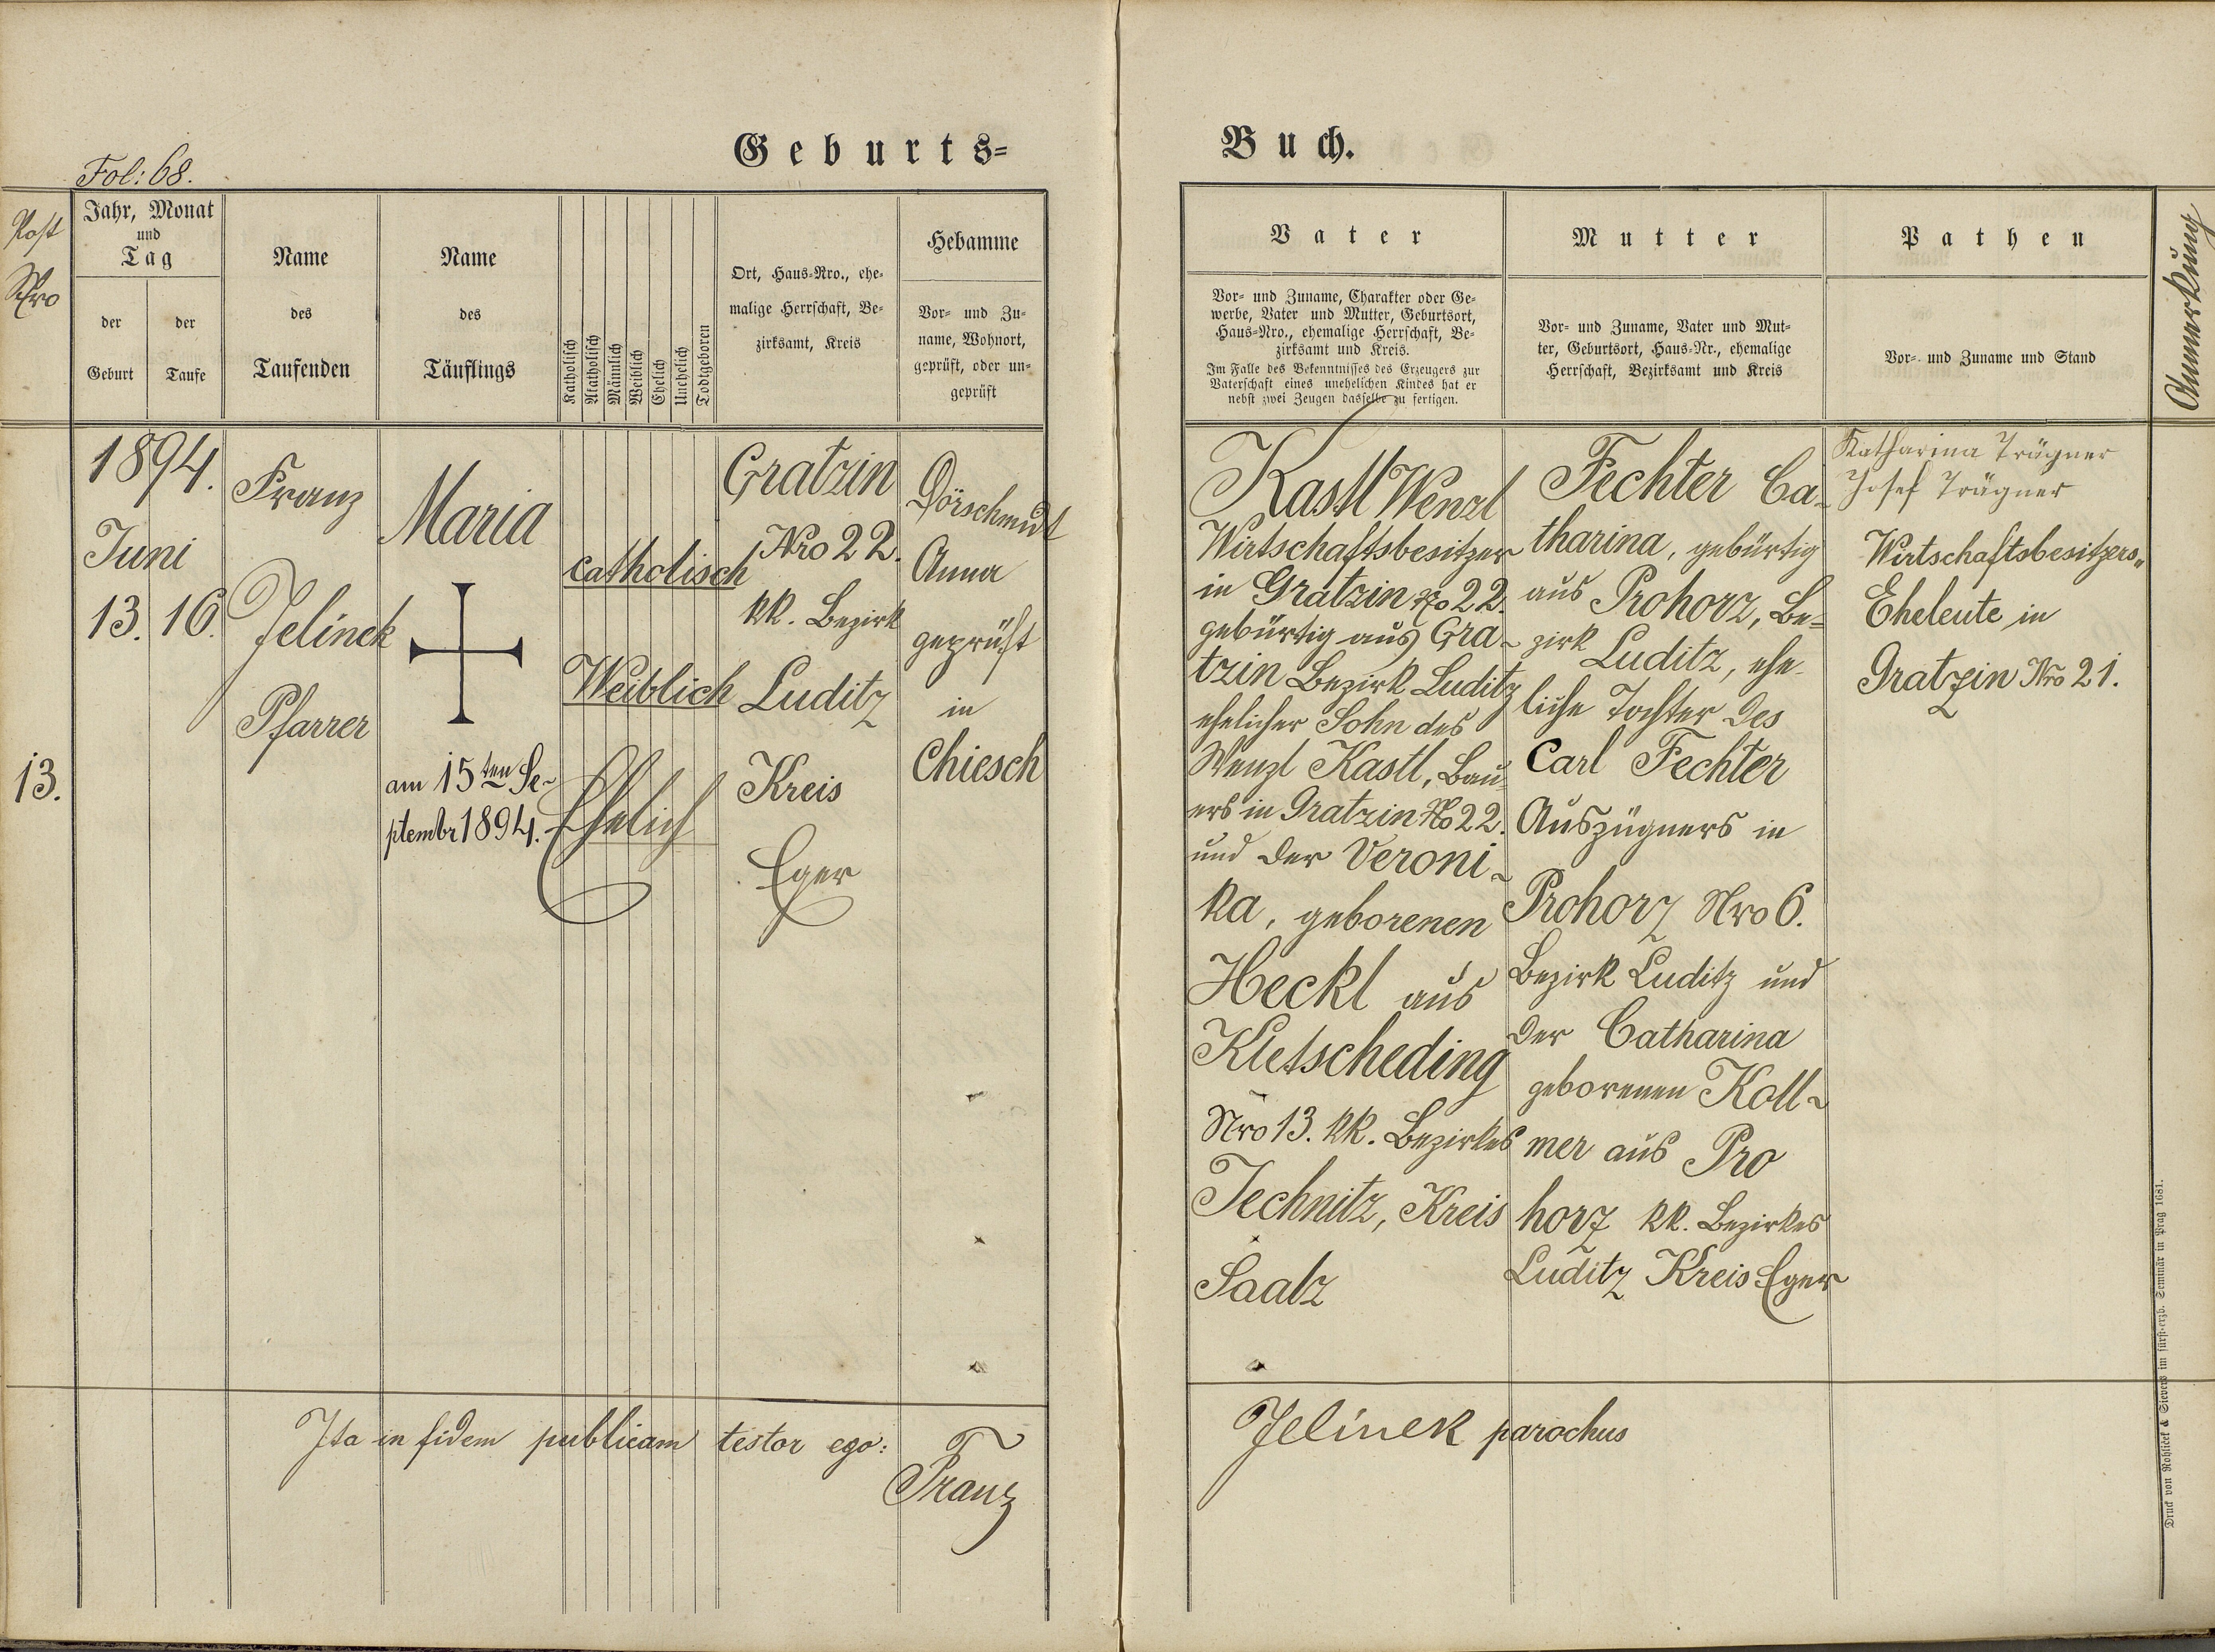 Geburts=
Buch.
Fol: 68.
Post
Nro
Jahr, Monat
und
Tag
der
Geburt
der
Taufe
Name
des
Taufenden
Name
des
Täuflings
Katholisch
Akatholisch
Männlich
Weiblich
Ehelich
Unehelich
Todtgeboren
Ort, Haus-Nro., ehe-
malige Herrschaft, Be-
zirksamt, Kreis
Hebamme
Vor- und Zu-
name, Wohnort,
geprüft, oder un-
geprüft
Vater
Vor- und Zuname, Charakter oder Ge-
werbe, Vater und Mutter, Geburtsort,
Haus-Nro., ehemalige Herrschaft, Be-
zirksamt und Kreis.
Im Falle des Bekenntnisses des Erzeugers zur
Vaterschaft eines unehelichen Kindes hat er
nebst zwei Zeugen dasselbe zu fertigen.
Mutter
Vor- und Zuname, Vater und Mut-
ter, Geburtsort, Haus-Nr., ehemalige
Herrschaft, Bezirksamt und Kreis
Pathen
Vor- und Zuname und Stand
Anmerkung
13.
1894.
Juni
13. 16.
Franz
Jelinek
Pfarrer
Maria
am 15ten Se-
ptembr 1894.
catholisch
Weiblich
Ehelich
Gratzin
Nro 22.
kk. Bezirk
Luditz
Kreis
Eger
Dörschmidt
Anna
geprüft
in
Chiesch
Kastl Wenzl
Wirtschaftsbesitzer
in Gratzin No 22.
gebürtig aus Gra-
tzin Bezirk Luditz
ehelicher Sohn des
Wenzl Kastl, Bau-
ers in Gratzin No 22.
und der Veroni-
ka, geborenen
Heckl aus
Kletscheding
Nro 13. kk. Bezirkes
Jechnitz, Kreis
Saatz
Fechter Ca-
tharina, gebürtig
aus Prohorz, Be=
zirk Luditz, ehe-
liche Tochter des
Carl Fechter
Auszügners in
Prohorz Nro 6.
Bezirk Luditz und
der Catharina
geborenen Koll-
mer aus Pro
horz kk. Bezirkes
Luditz Kreis Eger
Katharina Trägner
Josef Trägner
Wirtschaftsbesitzers-
Eheleute in
Gratzin Nro 21.
Ita in fidem publicam testor ego:
Franz
Jelinek parochus
Druck von Rohliček & Sievers im fürst-erzb. Seminär in Prag 1681.